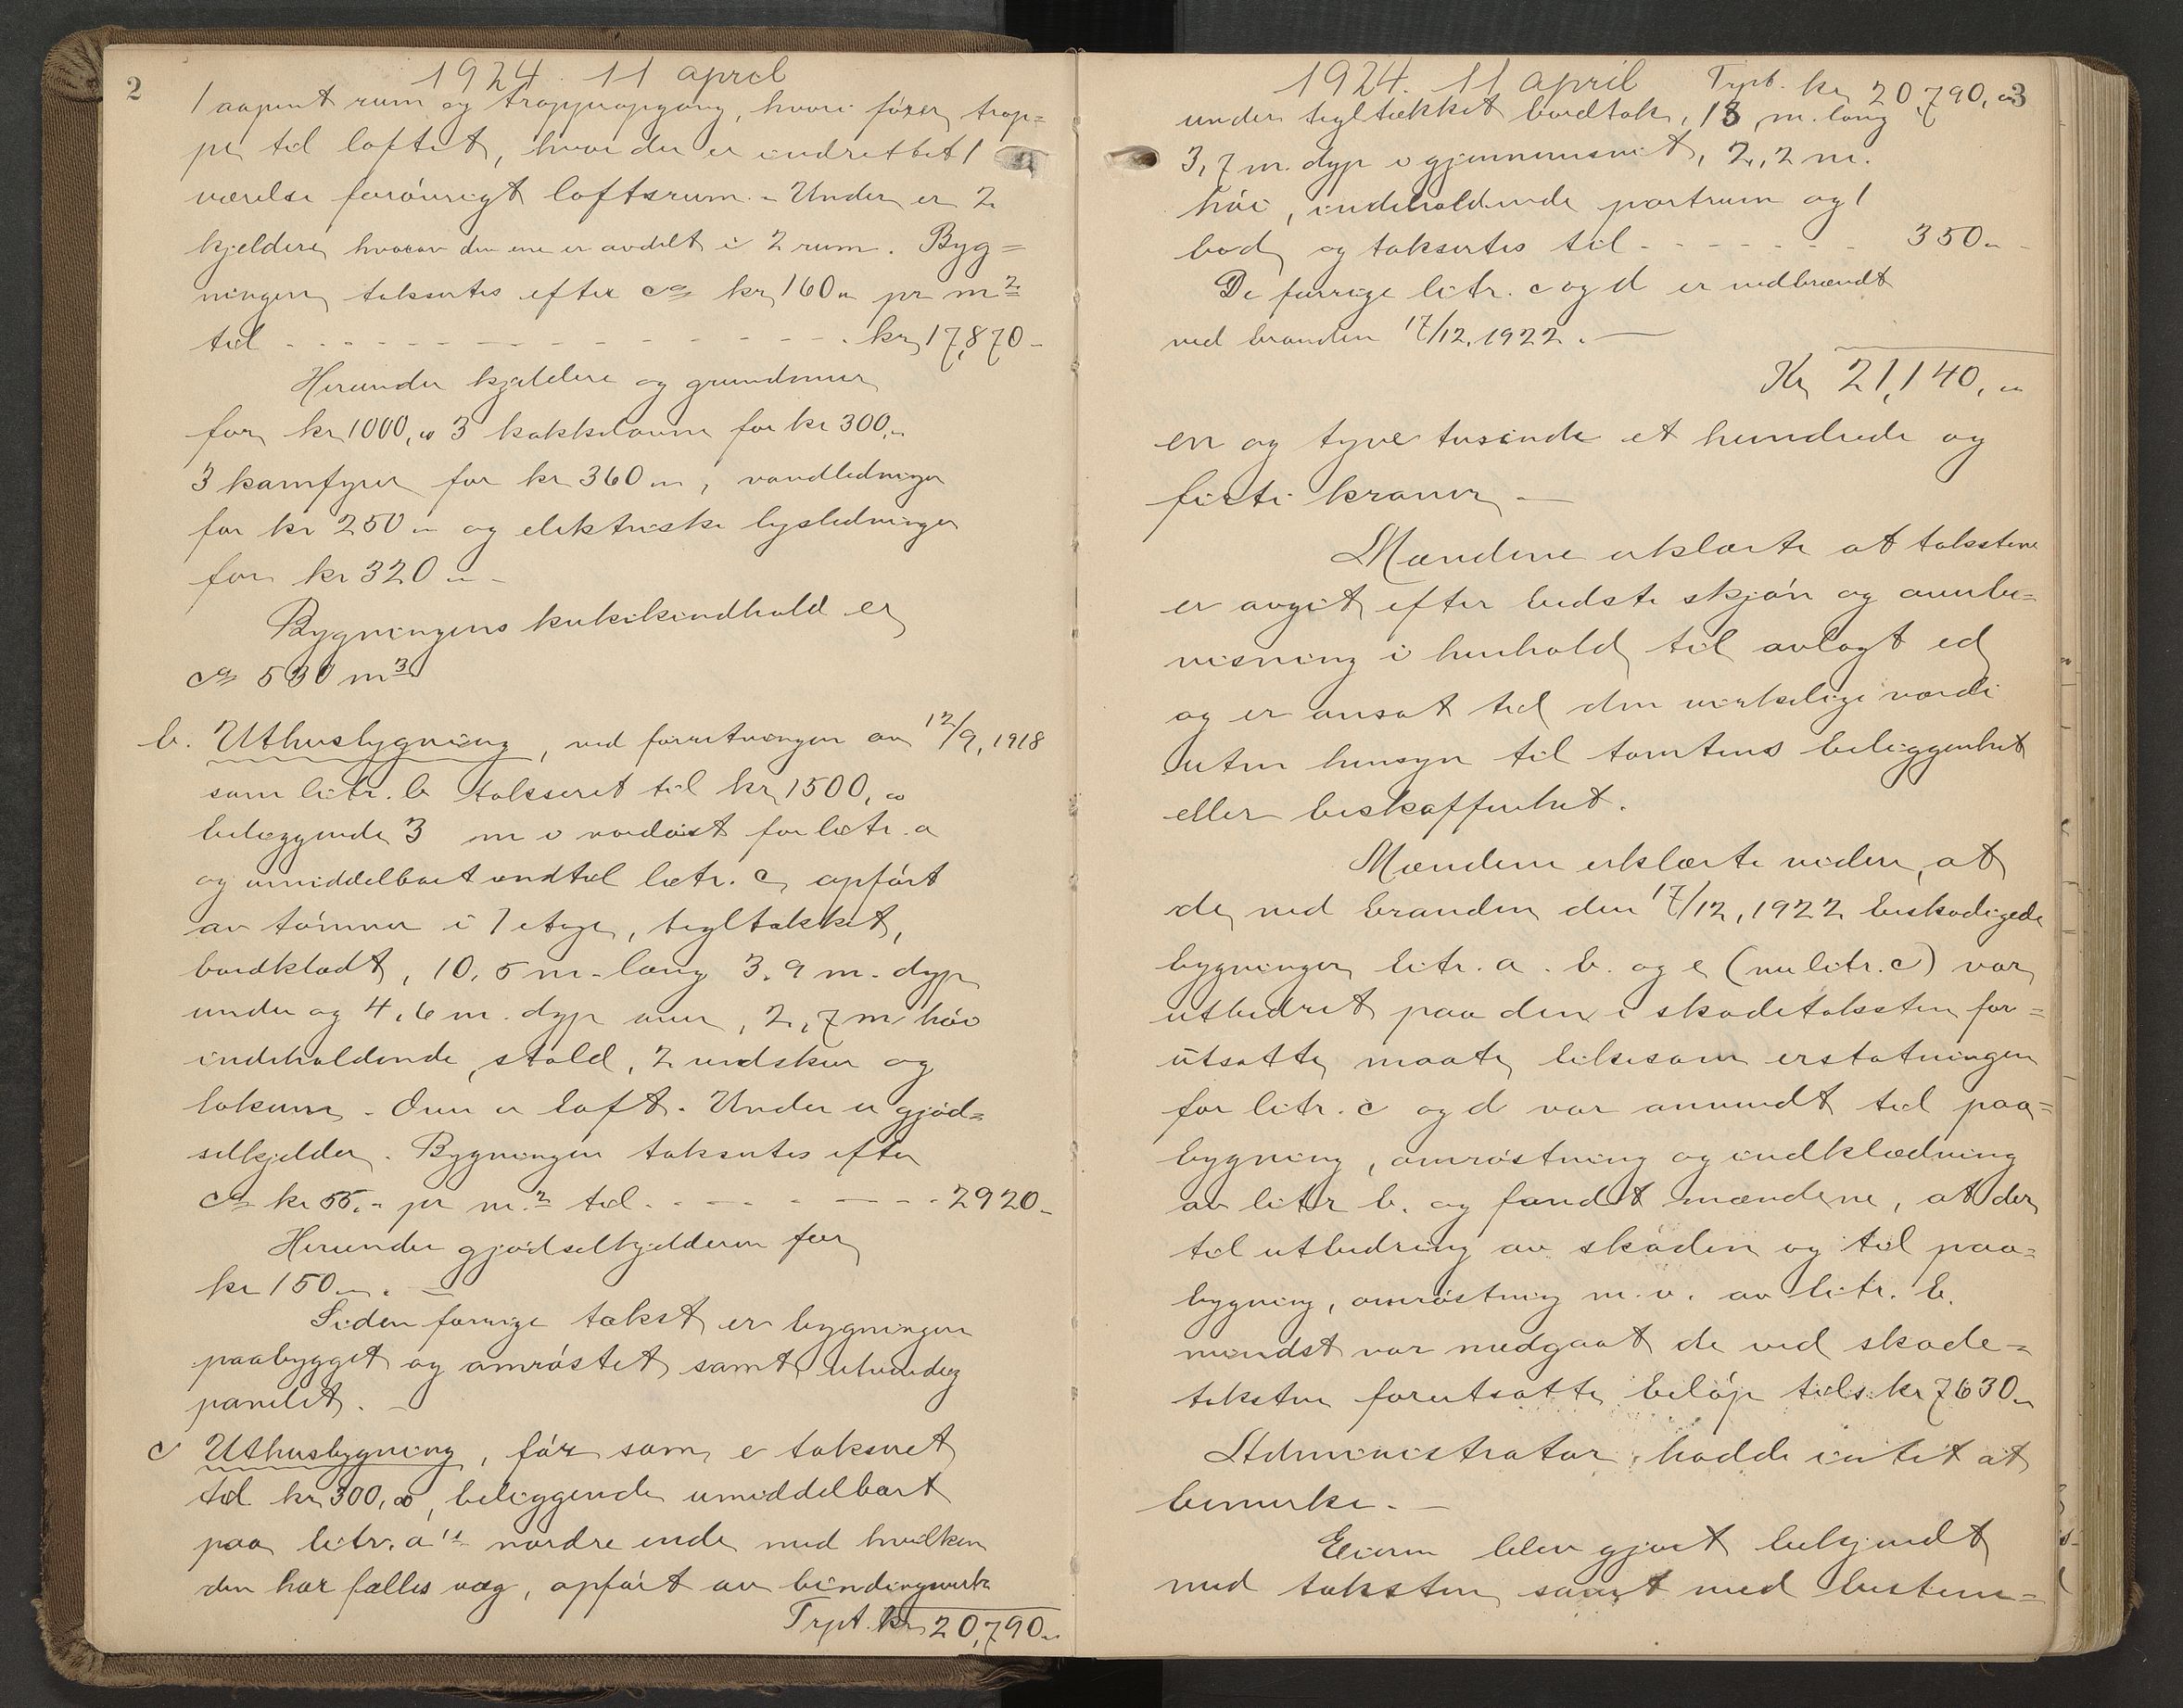 2
1924. 11 april
1 aapent rum og trappeopgang, hvori fører trap=
pe til loftet, hvor der er indrettet 1
værelse forøvrigt loftsrum. - Under er 2
kjeldere hvorav den ene er avdelt i 2 rum. Byg=
ningen taksertes efter ca kr 160 - pr m2
til - - - - - - - - - - - - - - kr 17,870 -
Herunder kjeldere og grundmur
for kr 1000,00 3 kakkelovne for kr 300,-
3 komfyrer for kr 360 -, vandledninger
for kr 250 - og elektriske lysledninger
for kr 320 - -
Bygningens kubikindhold er
ca 530 m3
b. Uthusbygning, ved forretningen av 12/9, 1918
som litr. b taksert til kr 1500,00
beliggende 3 m i nordøst for litr. a
og umiddelbart indtil litr. c, opført
av tømmer i 1 etage, tegltækket,
bordklædt, 10,5 m. lang 3,9 m. dyp
under og 4,6 m. dyp over, 2,7 m høi
indeholdende stald, 2 vedskur og
lokum. Over er loft. Under er gjød=
selkjelder. Bygningen taksertes efter
ca kr 55,- pr m.2 til - - - - - - - 2920 -
Herunder gjødselkjelderen for
kr 150 -. -
Siden forrige takst er bygningen
paabygget og omrøstet samt utvendig
panelet. -
c Uthusbygning, før som e taksert
til kr 300,00, beliggende umiddelbart
paa litr. a's nordre ende med hvilken
den har fælles væg, opført av bindingsverk
Trpt. kr 20,790 -
1924. 11 april Trpt. kr 20,790,00 3
under tegltækket bordtak, 13 m. lang
3,7 m. dyp i gjennemsnit, 2,2 m.
høi, indeholdende portrum og 1
bod og taksertes til - - - - - - - 350 - -
De forrige litr. c og d er nedbrændt
ved branden 17/12, 1922. -
Kr 21,140, -
en og tyve tusinde et hundrede og
firti kroner -
Mændene erklærte at taksterne
er avgit efter bedste skjøn og overbe=
visning i henhold til avlagt ed
og er ansat til den virkelige værdi
uten hensyn til tomtens beliggenhet
eller beskaffenhet.
Mændene erklærte videre, at
de ved branden den 17/12, 1922 beskadigede
bygninger litr. a. b. og e (nu litr. c) var
utbedret paa den i skadetaksten for=
utsatte maate likesom erstatningen
for litr. c og d var anvendt til paa=
bygning, omrøstning og indklædning
av litr b. og fandt mændene, at der
til utbedring av skaden og til paa=
bygning, omrøstning m. v. av litr. b.
mindst var medgaat de ved skade=
taksten forutsatte beløp tils. kr 7630 -
Administrator hadde intet at
bemerke. -
Eieren blev gjort bekjendt
med taksten samt med bestem=